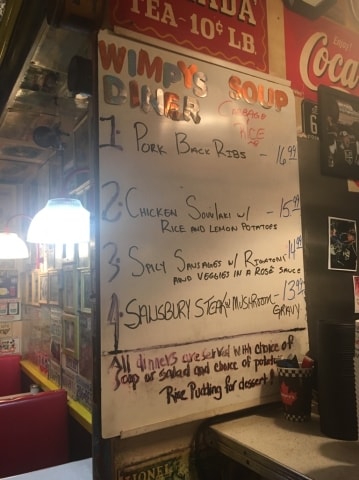 ADA
TEA-10¢ LB.
Enjoy
Coca
WIMPYS SOUP
DINER
CABBAGE
RICE
1. PORK BACK RIBS - 16.99
2. CHICKEN SOUVLAKI W/ - 15.99
RICE AND LEMON POTATOES
3 SPICY SAUSAGES W/ RIGATONI 14.99
AND VEGGIES IN A ROSÉ SAUCE
4 SALISBURY STEAK W MUSHROOM- 13.99
GRAVY
All dinners are served with choice of
soup or salad and choice of potatoe
Rice Pudding for dessert!
LIONEL